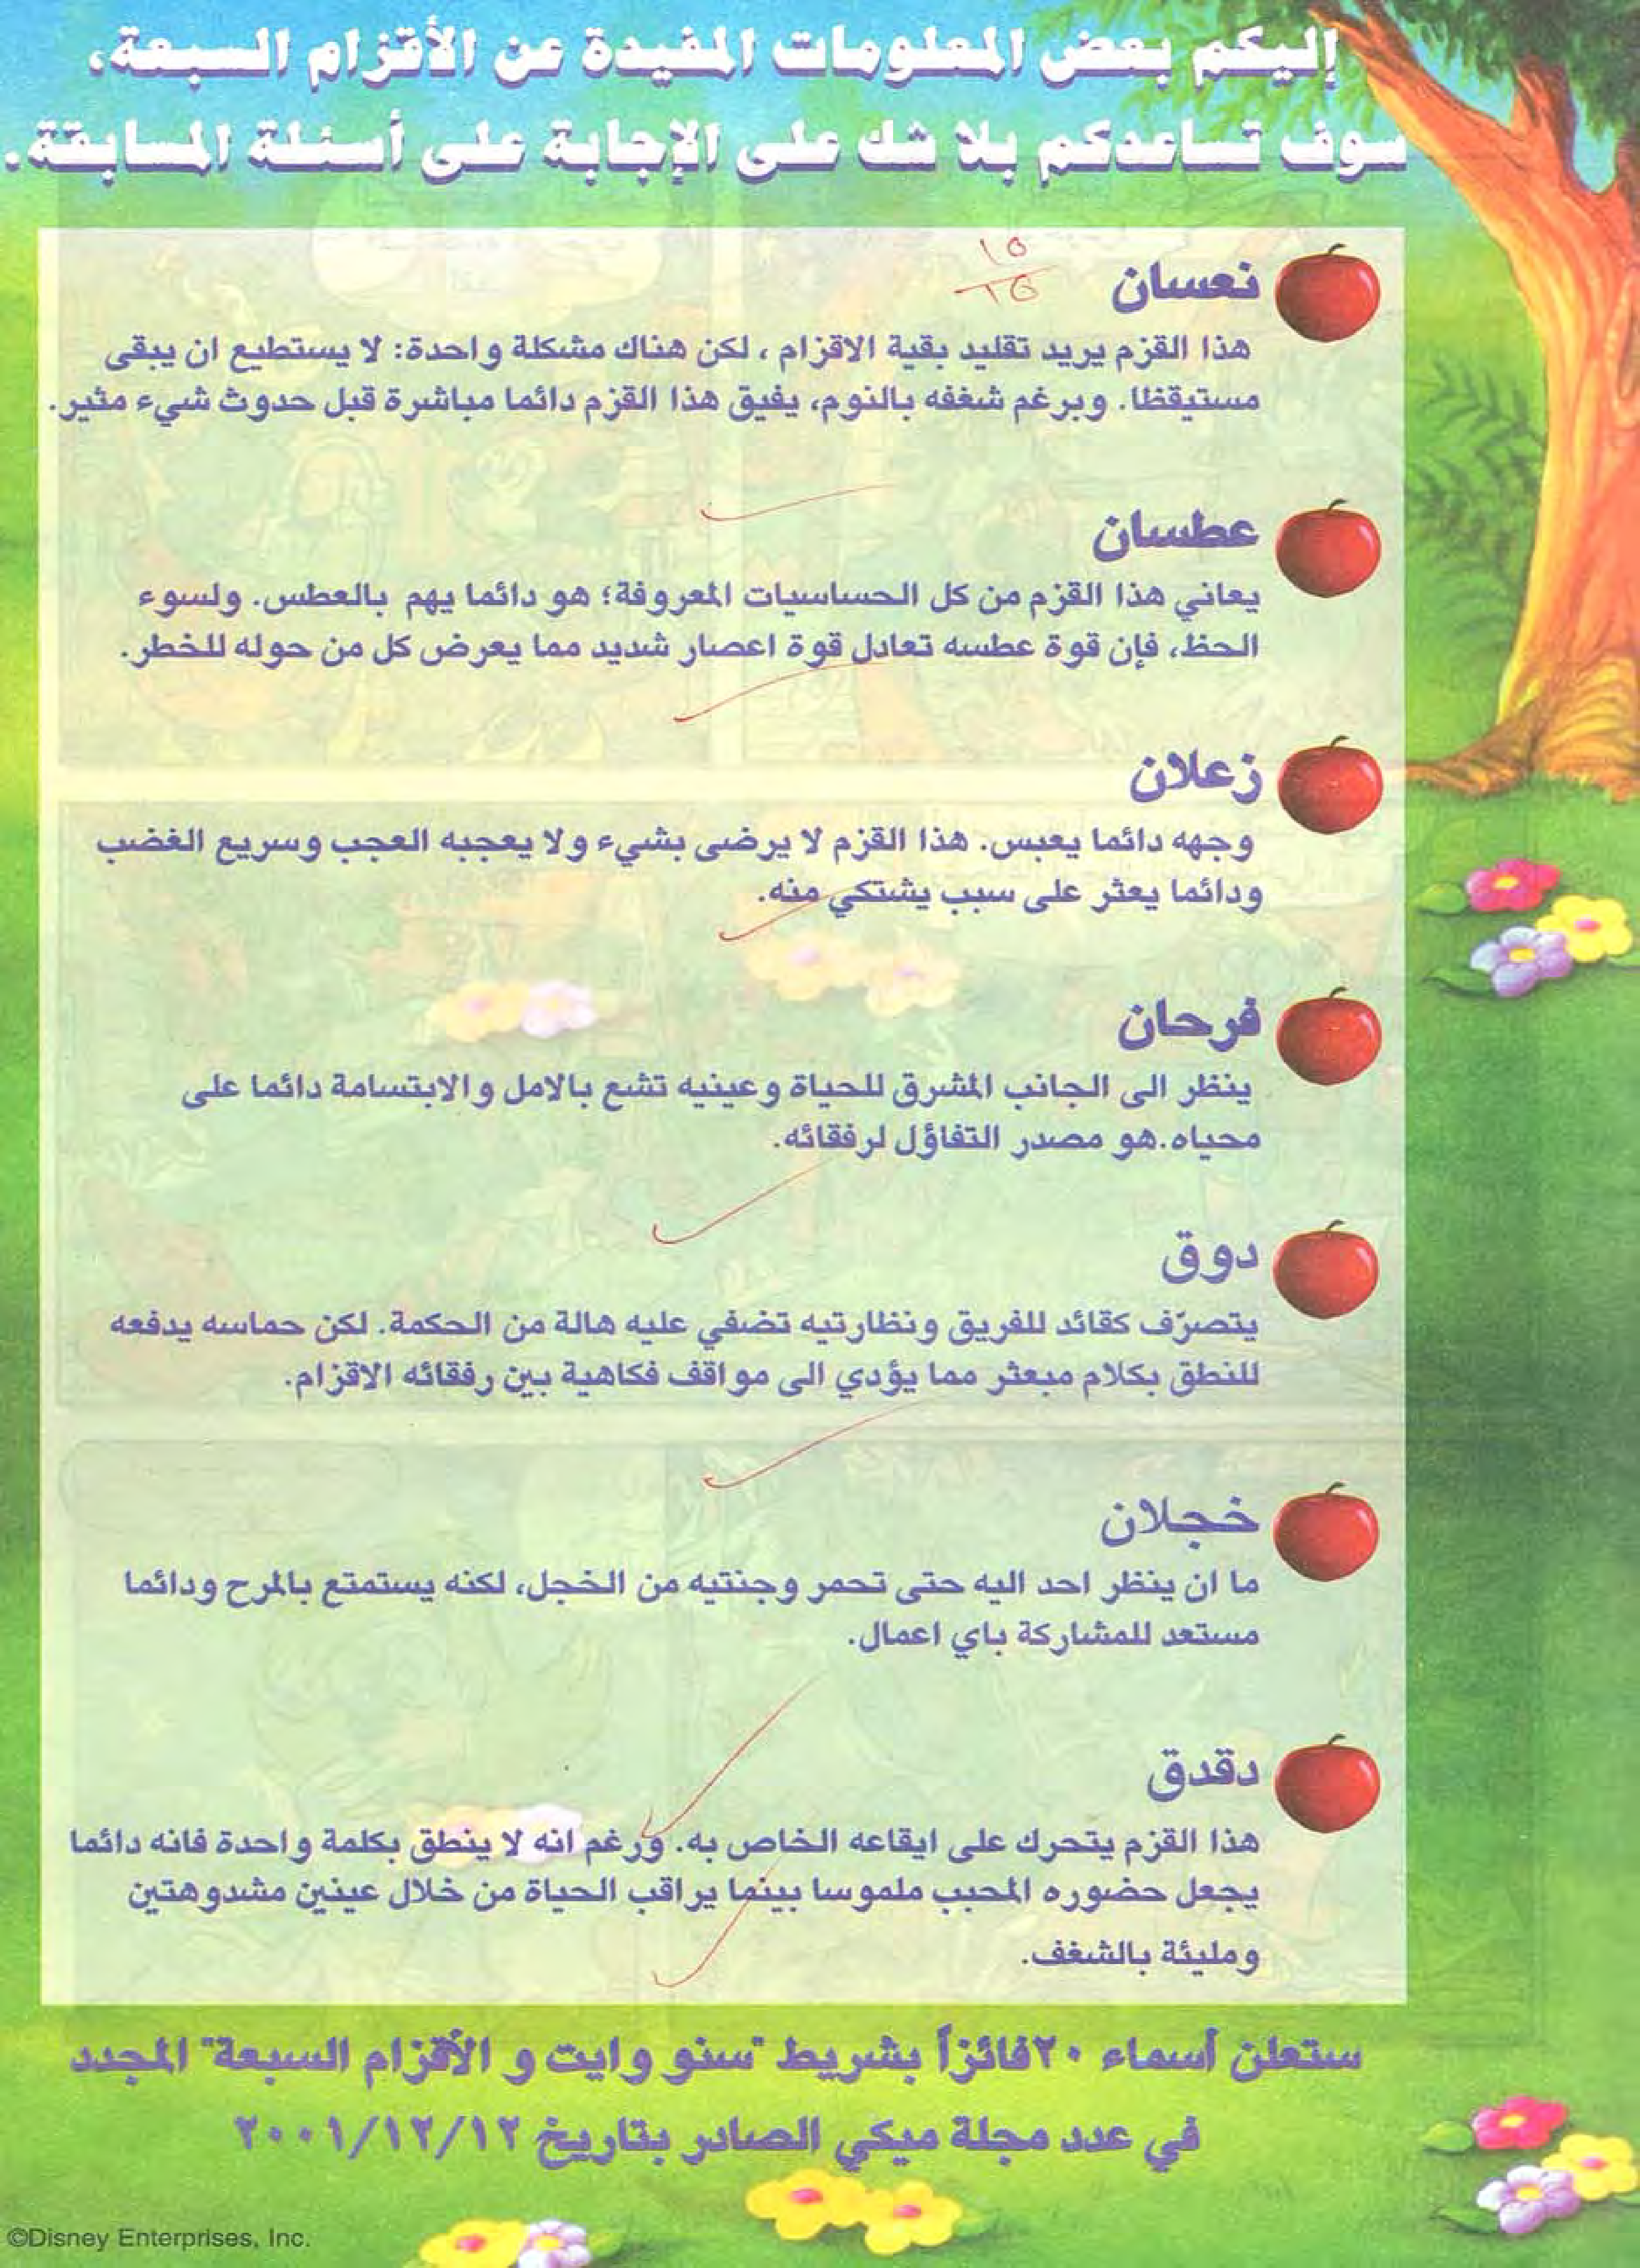 إليكم بعض المعلومات المفيدة عن الأقزام السبعة،
سوف تساعدكم بلا شك على الإجابة على أسئلة المسابقة.
نعسان
هذا القزم يريد تقليد بقية الاقزام ، لكن هناك مشكلة واحدة: لا يستطيع ان يبقى
مستيقظا. وبرغم شغفه بالنوم، يفيق هذا القزم دائما مباشرة قبل حدوث شيء مثير.
عطسان
يعاني هذا القزم من كل الحساسيات المعروفة؛ هو دائما يهم بالعطس. ولسوء
الحظ، فإن قوة عطسه تعادل قوة اعصار شديد مما يعرض كل من حوله للخطر.
زعلان
وجهه دائما يعبس. هذا القزم لا يرضى بشيء ولا يعجبه العجب وسريع الغضب
ودائما يعثر على سبب يشتكي منه.
فرحان
ينظر الى الجانب المشرق للحياة وعينيه تشع بالامل والابتسامة دائما على
محياه.هو مصدر التفاؤل لرفقائه.
دوق
يتصرّف كقائد للفريق ونظارتيه تضفي عليه هالة من الحكمة. لكن حماسه يدفعه
للنطق بكلام مبعثر مما يؤدي الى مواقف فكاهية بين رفقائه الاقزام.
خجلان
ما ان ينظر احد اليه حتى تحمر وجنتيه من الخجل، لكنه يستمتع بالمرح ودائما
مستعد للمشاركة باي اعمال.
دقدق
هذا القزم يتحرك على ايقاعه الخاص به. ورغم انه لا ينطق بكلمة واحدة فانه دائما
يجعل حضوره المحبب ملموسا بينما يراقب الحياة من خلال عينين مشدوهتين
ومليئة بالشغف.
ستعلن أسماء ٢٠فائزاً بشريط "سنو وايت و الأقزام السبعة" المجدد
في عدد مجلة ميكي الصادر بتاريخ ٢٠٠١/١٢/١٢
©Disney Enterprises, Inc.